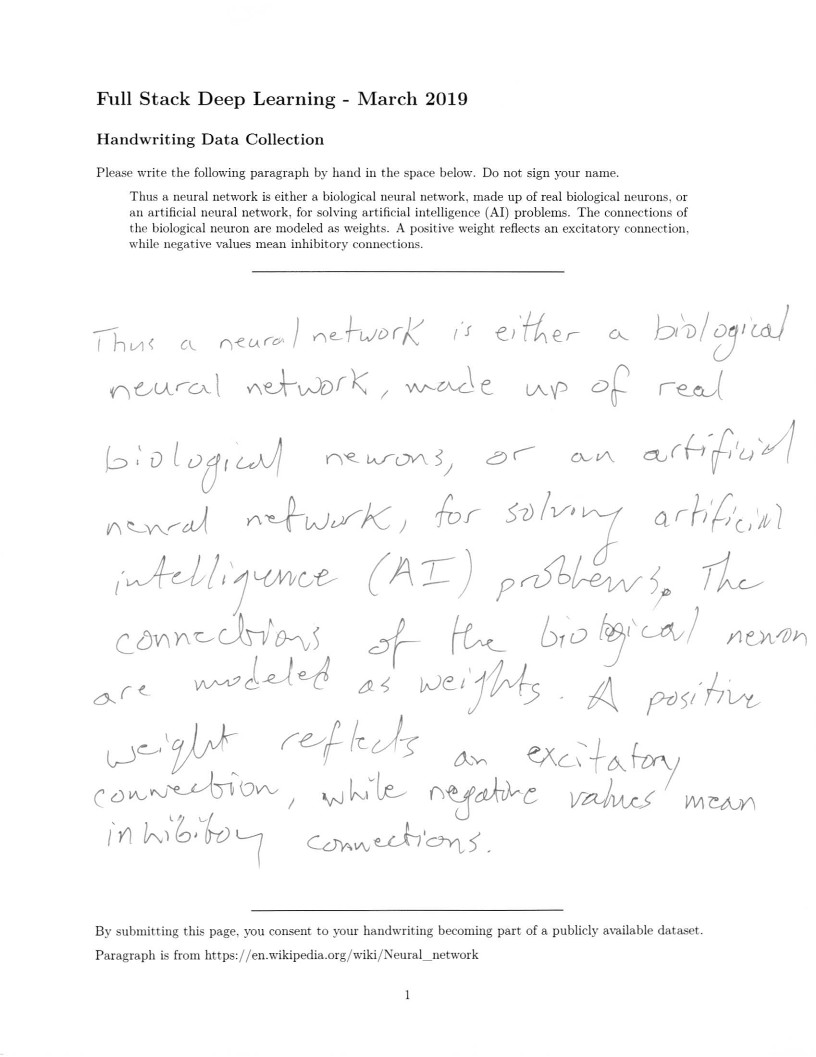 Full Stack Deep Learning - March 2019
Handwriting Data Collection
Please write the following paragraph by hand in the space below. Do not sign your name.
Thus a neural network is either a biological neural network, made up of real biological neurons, or
an artificial neural network, for solving artificial intelligence (AI) problems. The connections of
the biological neuron are modeled as weights. A positive weight reflects an excitatory connection,
while negative values mean inhibitory connections.
Thus a neural network is either a biological
neural network, made up of real
biological neurons, or an artificial
neural network, for solving artificial
intelligence (AI) problems. The
connections of the biological neuron
are modeled as weights. A positive
weight reflects an excitatory
connection, while negative values mean
inhibitory connections.
By submitting this page, you consent to your handwriting becoming part of a publicly available dataset.
Paragraph is from https://en.wikipedia.org/wiki/Neural_network
1